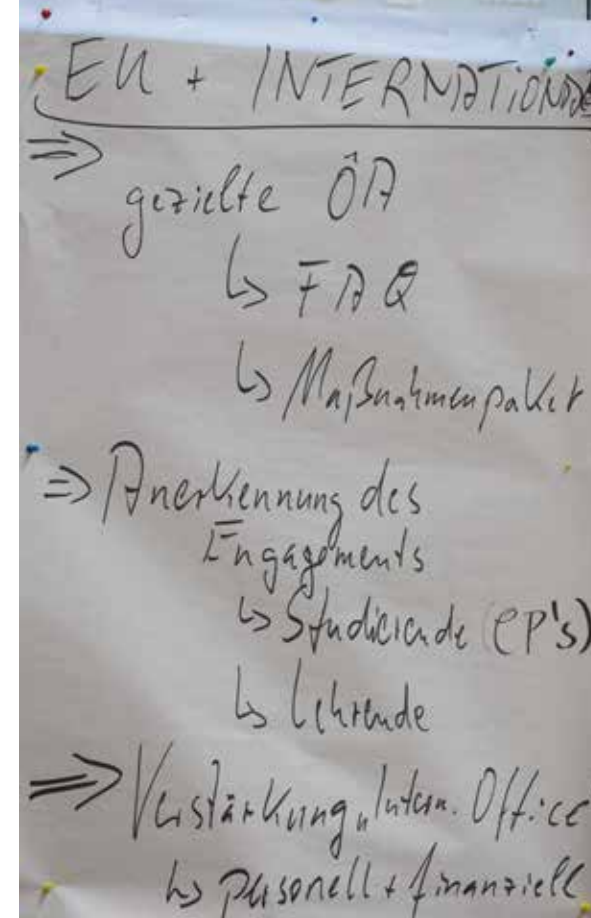 EU + INTERNATIONA
⇒
gezielte ÖA
↳ FAQ
↳ Maßnahmenpaket
⇒ Anerkennung des
Engagements
↳ Studierende (CP's)
↳ Lehrende
⇒ Verstärkung „Intern. Office
↳ personell + finanziell